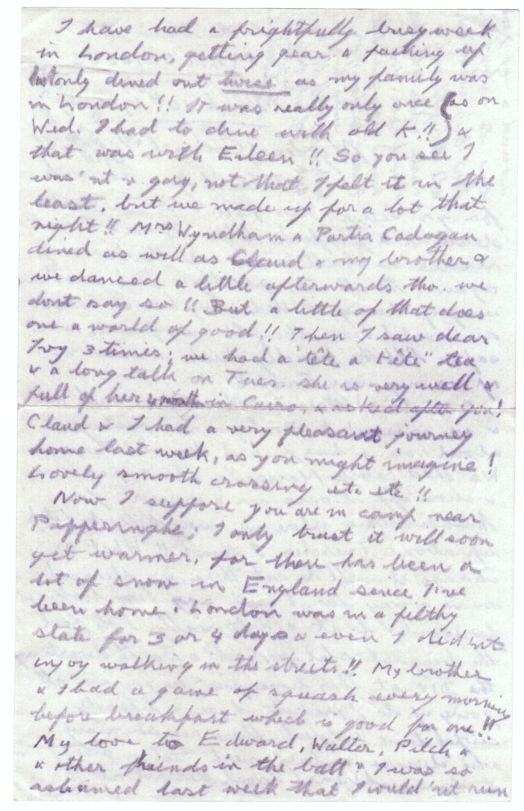 I have had a frightfully busy week
in London, getting gear & packing up
but only dined out twice as my family was
in London!! It was really only once (as on
Wed. I had to dine with old K.!!) &
that was with Eileen!! So you see I
was'nt v gay, not that I felt it in the
least, but we made up for a lot that
night!! Mrs Wyndham & Portia Cadogan
dined as well as Claud & my brother &
we danced a little afterwards tho. we
dont say so!! But a little of that does
one a world of good!! Then I saw dear
Ivy 3 times; we had a tête a tête" tea
& a long talk on Tues. she is very well &
full of her month in Cairo, & asked after you!
Claud & I had a very pleasant journey
home last week, as you might imagine!
Lovely smooth crossing etc etc!!
Now I suppose you are in camp near
Popperinghe, I only trust it will soon
get warmer, for there has been a
lot of snow in England since I've
been home. London was in a filthy
state for 3 or 4 days & even I did'nt
enjoy walking in the streets!! My brother
& I had a game of squash every morning
before breakfast which is good for one!!
My love to Edward, Walter, Pilch &
& other friends in the batt" I was so
ashamed last week that I would'nt run